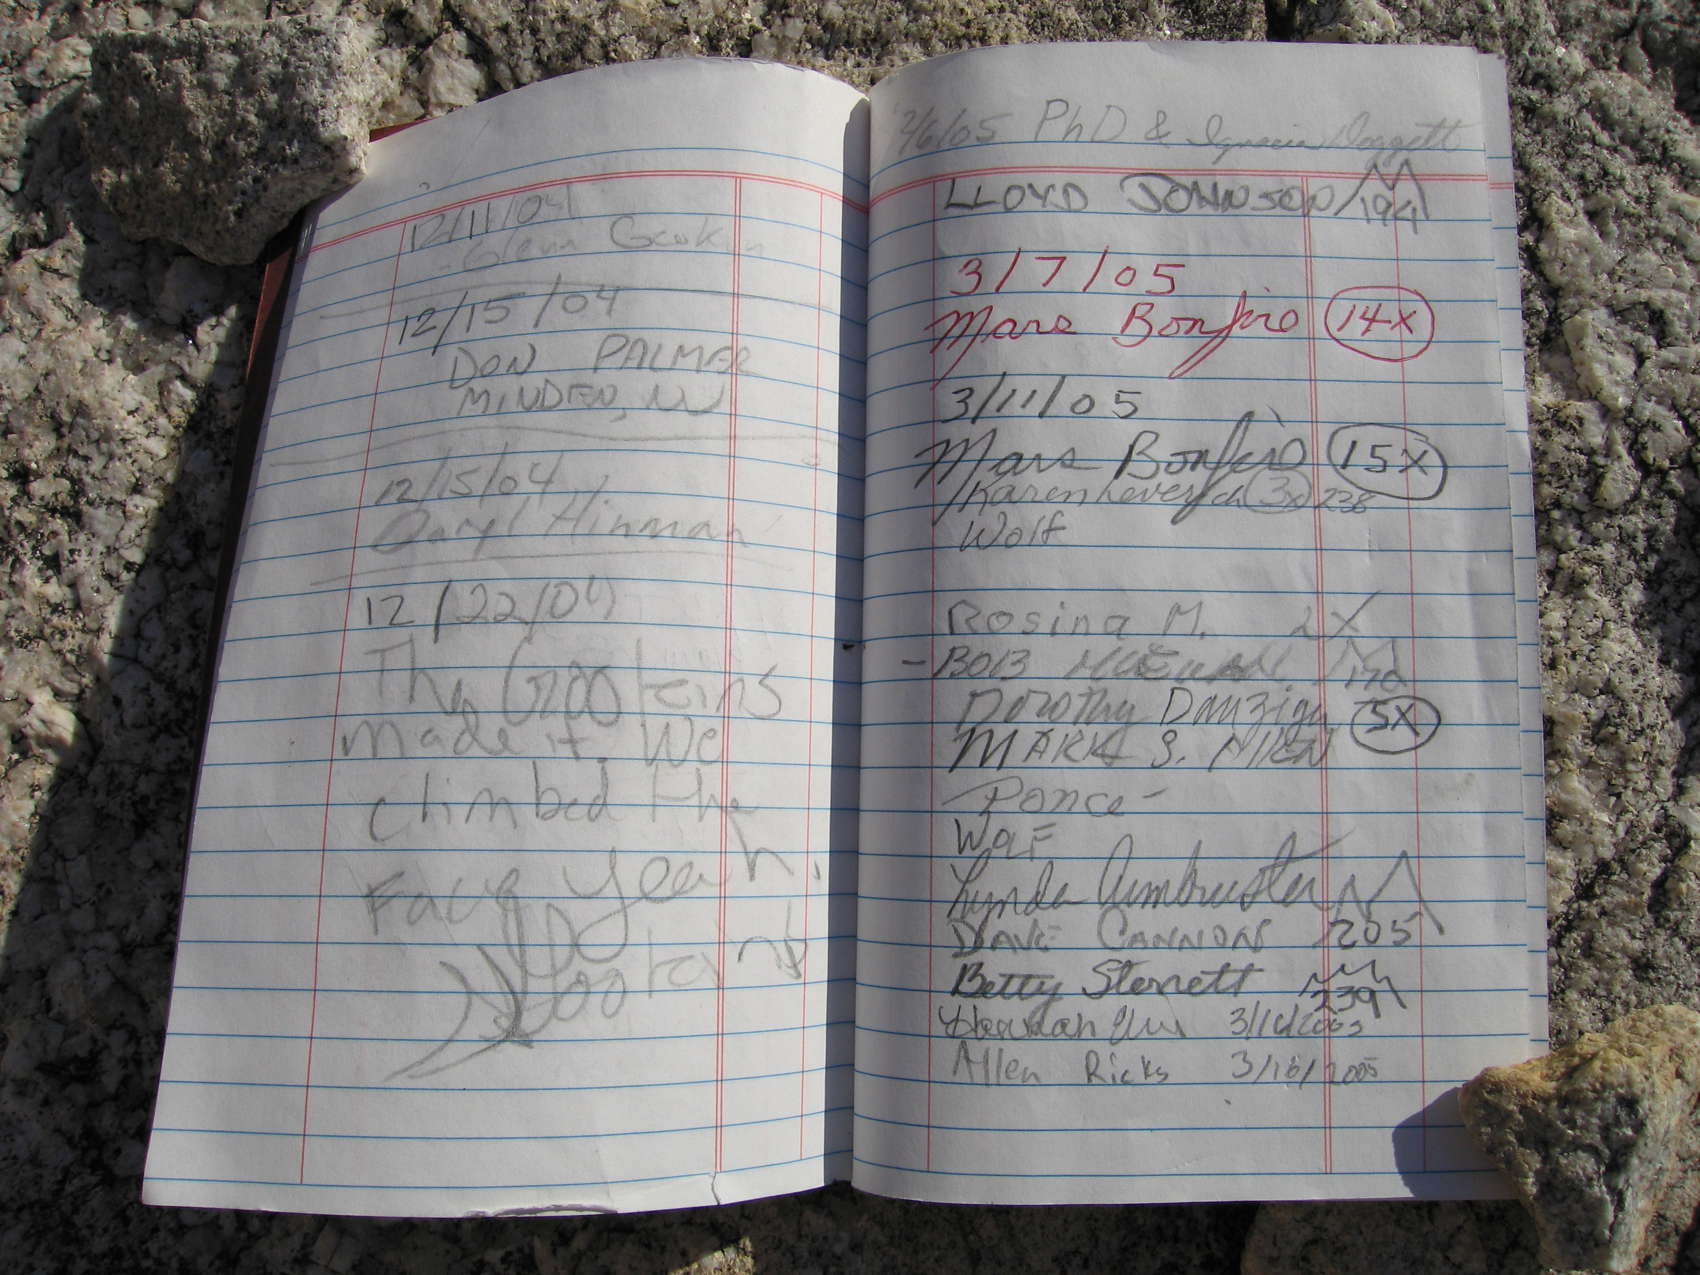 12/11/04
- Glenn
12/15/04
DON PALMER
MINDEN, NV
12/15/04
Daryl Hinman
12/22/04
The
made it. We
climbed the
yeah!
2/6/05 PhD & Ignacia Doggett
LLOYD JOHNSON 194
3/7/05
Mars Bonfire 14x
3/11/05
Mars Bonfire 15x
Karen Leverich 3x 238
Wolf
Rosina M. 2X
- BOB
Dorothy Danziger 5X
MARK S. AllEN
Ponce -
WOLF
Lynda Armbruster
DAVE CANNON 205
Betty Sterrett 239
3/16/2005
Allen Ricks 3/16/2005